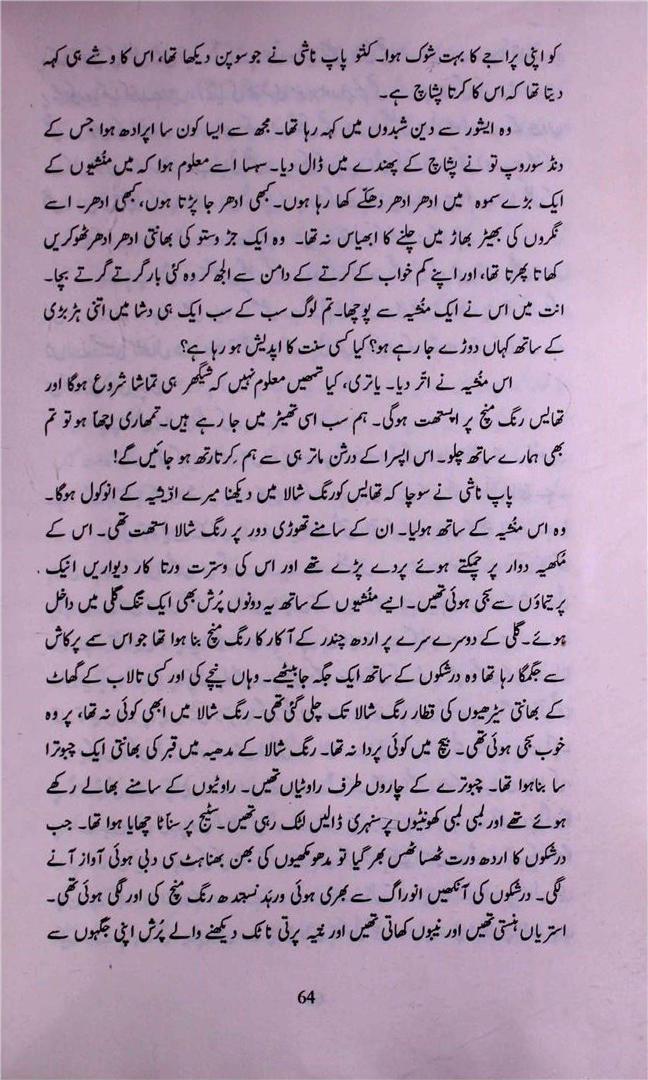 کو اپنی پراجے کا بہت شوک ہوا۔ کنتو پاپ ناشی نے جو سوپن دیکھا تھا، اس کا وشے ہی کہہ
دیتا تھا کہ اس کا کرتا پشاچ ہے۔
وہ ایشور سے دین شبدوں میں کہہ رہا تھا۔ مجھ سے ایسا کون سا اپرادھ ہوا جس کے
دنڈ سوروپ تو نے پشاچ کے پھندے میں ڈال دیا۔ سہسا اسے معلوم ہوا کہ میں منُشیوں کے
ایک بڑے سموہ میں ادھر ادھر دھکّے کھا رہا ہوں۔ کبھی ادھر جا پڑتا ہوں، کبھی ادھر۔ اسے
نگروں کی بھیڑ بھاڑ میں چلنے کا ابھیاس نہ تھا۔ وہ ایک جڑ وستو کی بھانتی ادھر ادھر ٹھوکریں
کھاتا پھرتا تھا، اور اپنے کم خواب کے کرتے کے دامن سے الجھ کر وہ کئی بار گرتے گرتے بچا۔
انت میں اس نے ایک منُشیہ سے پوچھا۔ تم لوگ سب کے سب ایک ہی دشا میں اتنی ہڑبڑی
کے ساتھ کہاں دوڑے جا رہے ہو؟ کیا کسی سنت کا اپدیش ہو رہا ہے؟
اس منُشیہ نے اتّر دیا۔ یاتری، کیا تمھیں معلوم نہیں کہ شیگھر ہی تماشا شروع ہوگا اور
تھایس رنگ منچ پر اپستھت ہوگی۔ ہم سب اسی تھیٹر میں جا رہے ہیں۔ تمھاری اچھا ہو تو تم
بھی ہمارے ساتھ چلو۔ اس اپسرا کے درشن ماتر ہی سے ہم کِرتارتھ ہو جائیں گے!
پاپ ناشی نے سوچا کہ تھایس کو رنگ شالا میں دیکھنا میرے ادّیشیہ کے انوکول ہوگا۔
وہ اس منُشیہ کے ساتھ ہولیا۔ ان کے سامنے تھوڑی دور پر رنگ شالا اِستھت تھی۔ اس کے
مُکھیہ دوار پر چمکتے ہوئے پردے پڑے تھے اور اس کی وسترت ورتا کار دیواریں انیک
پرتیماؤں سے سجی ہوئی تھیں۔ ایسے منُشیوں کے ساتھ یہ دونوں پُرش بھی ایک تنگ گلی میں داخل
ہوئے۔ گلی کے دوسرے سرے پر اردھ چندر کے آکار کا رنگ منچ بنا ہوا تھا جو اس سمے پرکاش
سے جگمگا رہا تھا وہ درشکوں کے ساتھ ایک جگہ جا بیٹھے۔ وہاں نیچے کی اور کسی تالاب کے گھاٹ
کے بھانتی سیڑھیوں کی قطار رنگ شالا تک چلی گئی تھی۔ رنگ شالا میں ابھی کوئی نہ تھا، پر وہ
خوب سجی ہوئی تھی۔ بیچ میں کوئی پردا نہ تھا۔ رنگ شالا کے مدھیہ میں قبر کی بھانتی ایک چبوترا
سا بنا ہوا تھا۔ چبوترے کے چاروں طرف راوٹیاں تھیں۔ راوٹیوں کے سامنے بھالے رکھے
ہوئے تھے اور لمبی لمبی کھونٹیوں پر سنہری ڈالیں لٹک رہی تھیں۔ سٹیج پر سنّاٹا چھایا ہوا تھا۔ جب
درشکوں کا اردھ ورت ٹھسا ٹھس بھر گیا تو مدھو مکھیوں کی بھن بھناہٹ سی دبی ہوئی آواز آنے
لگی۔ درشکوں کی آنکھیں انوراگ سے بھری ہوئی رنگ منچ کی اور لگی ہوئی تھی۔
استریاں ہنستی تھیں اور نیبوں کھاتی تھیں اور نتیہ پرتی ناٹک دیکھنے والے پُرش اپنی جگہوں سے
64